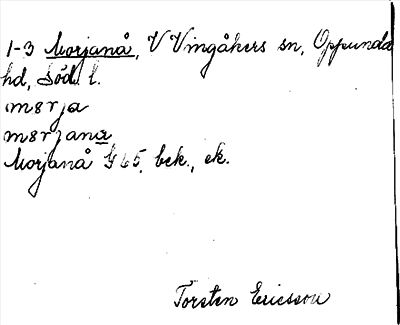 1-3 Morjanå, V Vingåkers sn, Oppunda
hd, Söd. l.
m8rja
m8rjana
Morjanå G 65, bek., ek.
Torsten Ericsson